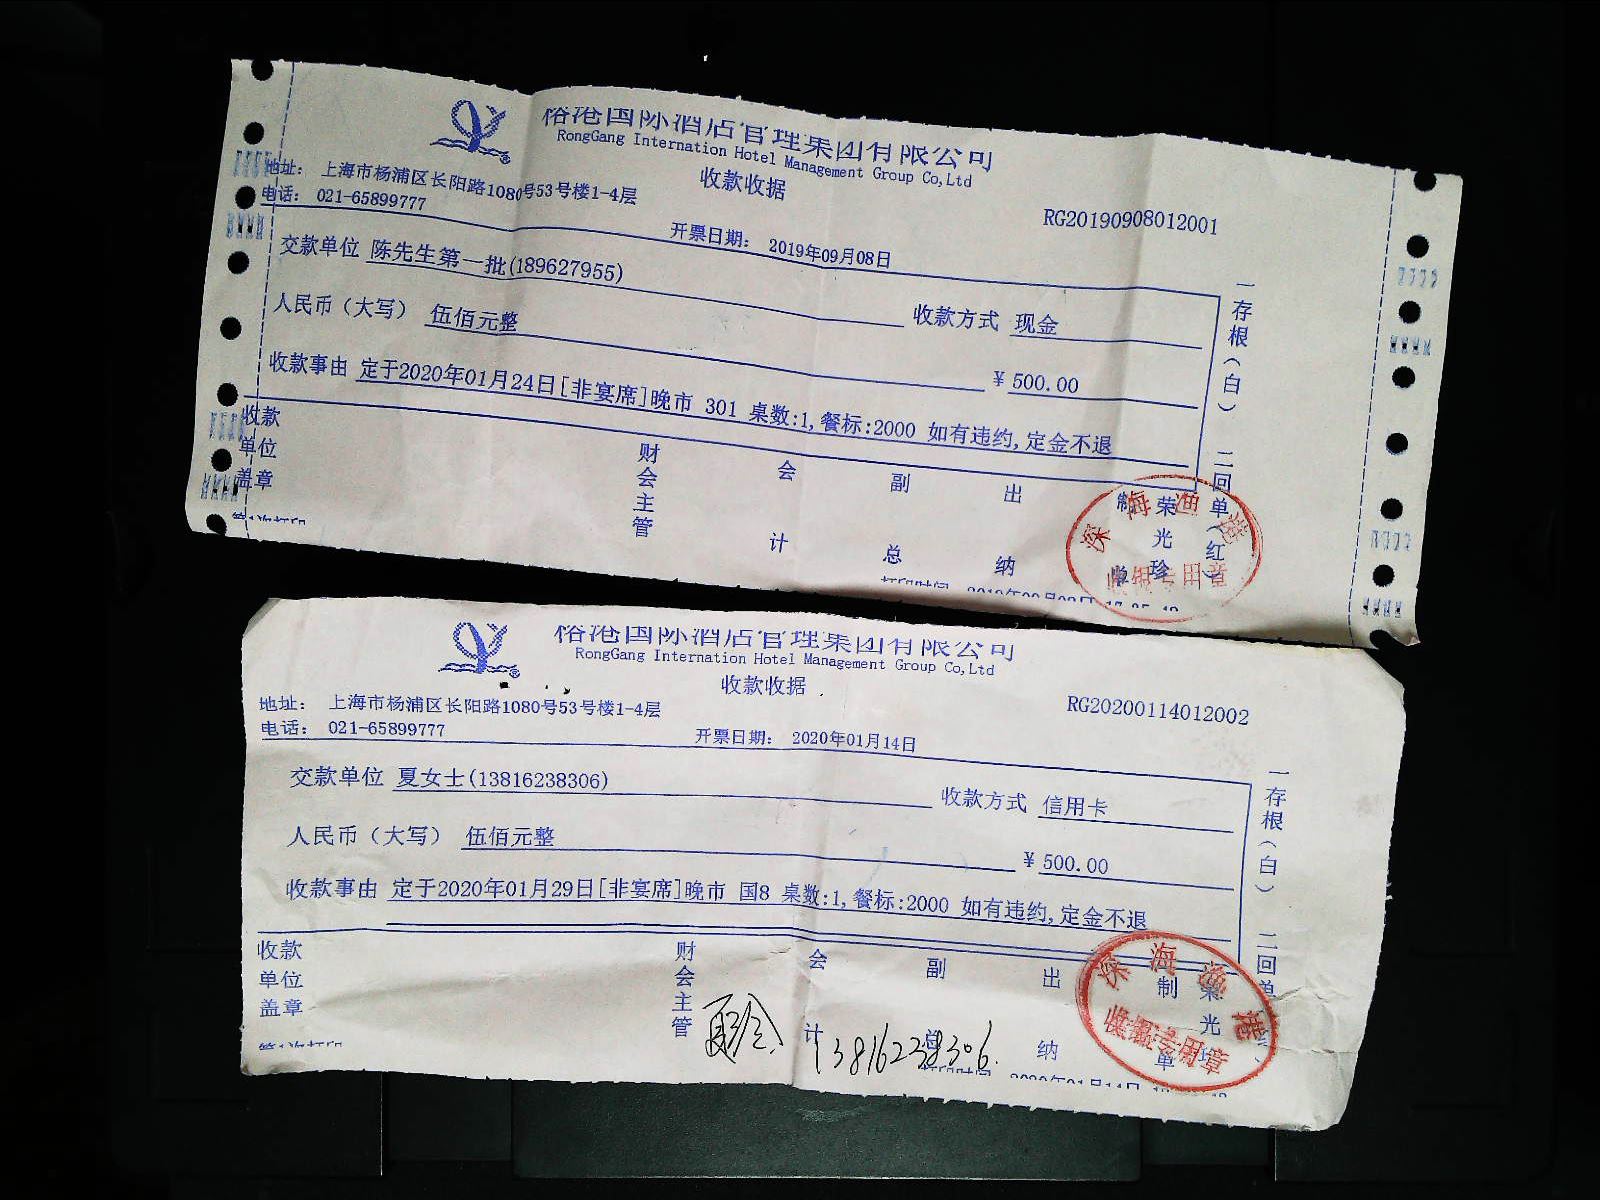 榕港国际酒店管理集团有限公司
RongGang Internation Hotel Management Group Co,Ltd
收款收据
地址： 上海市杨浦区长阳路1080号53号楼1-4层
电话： 021-65899777
RG20190908012001
开票日期： 2019年09月08日
交款单位 陈先生第一批(189627955)
收款方式 现金
人民币（大写） 伍佰元整
￥500.00
收款事由 定于2020年01月24日[非宴席]晚市 301 桌数:1,餐标:2000 如有违约,定金不退
一存根（白） 二回单（红）
收款单位盖章
财会主管
会计
副总
出纳
制单
荣光珍
深海渔港
收银专用章
第1次打印
打印时间
榕港国际酒店管理集团有限公司
RongGang Internation Hotel Management Group Co,Ltd
收款收据
地址： 上海市杨浦区长阳路1080号53号楼1-4层
电话： 021-65899777
RG20200114012002
开票日期： 2020年01月14日
交款单位 夏女士(13816238306)
收款方式 信用卡
人民币（大写） 伍佰元整
￥500.00
收款事由 定于2020年01月29日[非宴席]晚市 国8 桌数:1,餐标:2000 如有违约,定金不退
一存根（白） 二回单
收款单位盖章
财会主管
会计
副总
出纳
制单
荣光珍
深海渔港
收银专用章
13816238306.
第1次打印
打印时间